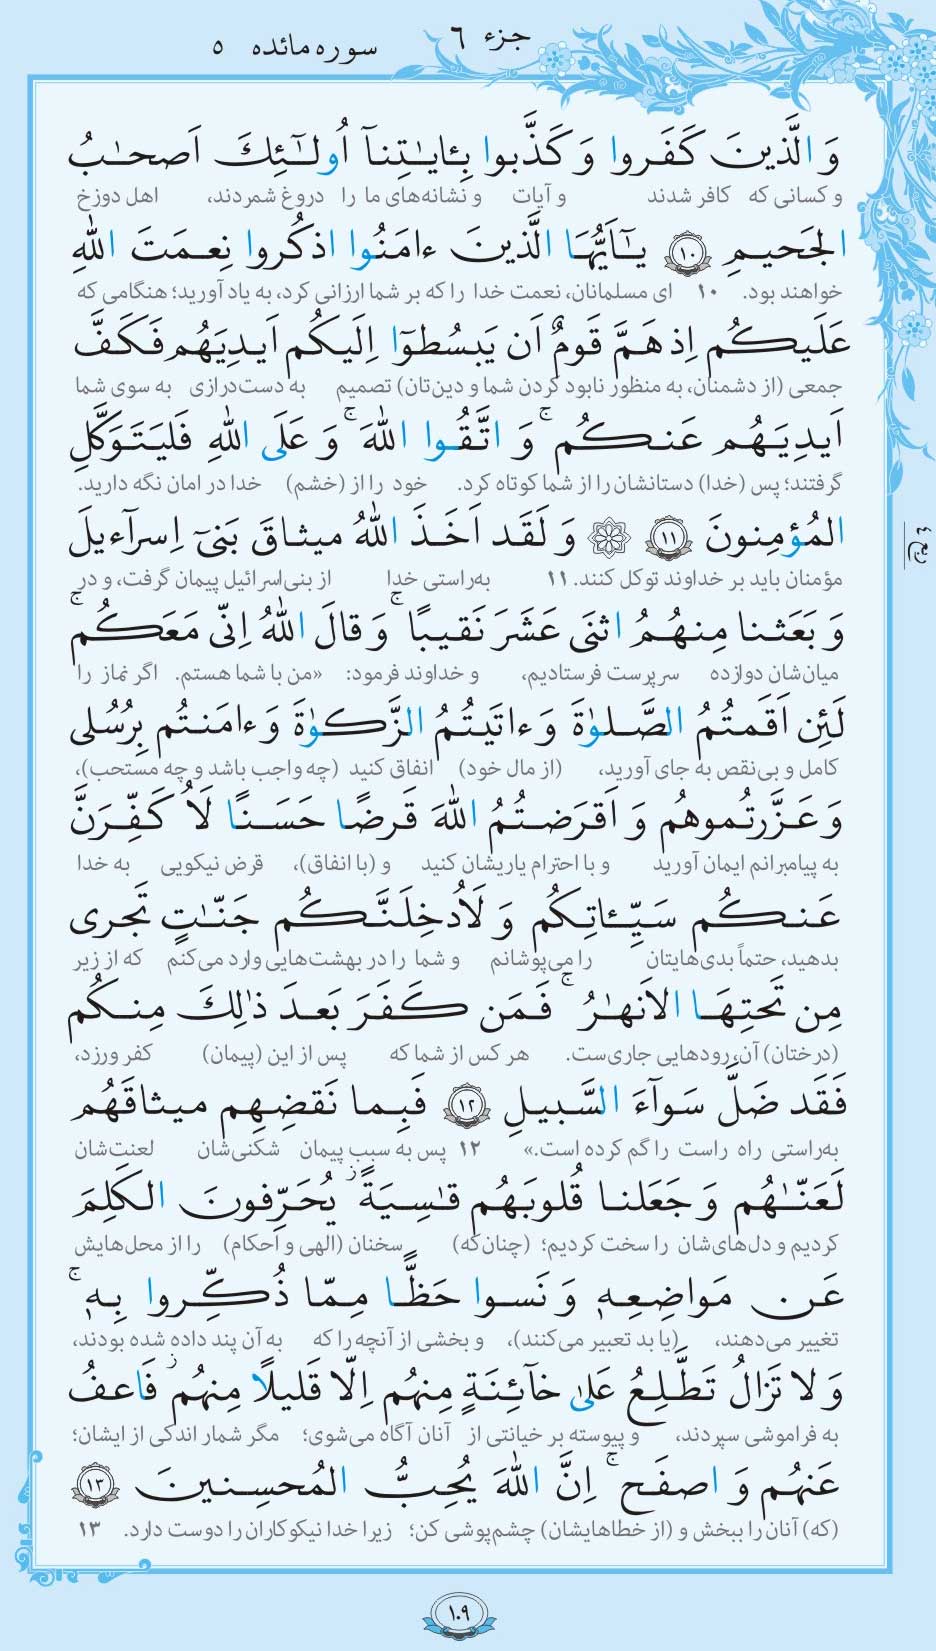 جزء ۶ سوره مائده ۵
وَ الَّذينَ كَفَروا وَ كَذَّبوا بِـٔايـٰتِنآ اُولـٰٓئِكَ اَصحـٰبُ
و کسانی که کافر شدند و آیات و نشانه‌های ما را دروغ شمردند، اهل دوزخ
الجَحيمِ ۱۰ يـٰٓاَيُّهَا الَّذينَ ءامَنُوا اذكُروا نِعمَتَ اللّٰهِ
خواهند بود. ۱۰ ای مسلمانان، نعمت خدا را که بر شما ارزانی کرد، به یاد آورید؛ هنگامی که
عَلَيكُم اِذ هَمَّ قَومٌ اَن يَبسُطوٓا اِلَيكُم اَيدِيَهُم فَكَفَّ
جمعی (از دشمنان، به منظور نابود کردن شما و دین‌تان) تصمیم به دست‌درازی به سوی شما
اَيدِيَهُم عَنكُم ۚ وَ اتَّقُوا اللّٰهَ ۚ وَ عَلَى اللّٰهِ فَليَتَوَكَّلِ
گرفتند؛ پس (خدا) دستانشان را از شما کوتاه کرد. خود را از (خشم) خدا در امان نگه دارید.
المُؤمِنونَ ۱۱ ۞ وَ لَقَد اَخَذَ اللّٰهُ ميثاقَ بَنىٓ اِسرآءيلَ
مؤمنان باید بر خداوند توکل کنند. ۱۱ به‌راستی خدا از بنی‌اسرائیل پیمان گرفت، و در
ربع ٤
وَ بَعَثنا مِنهُمُ اثنَى عَشَرَ نَقيبًا ۚ وَ قالَ اللّٰهُ اِنّى مَعَكُم ۚ
میان‌شان دوازده سرپرست فرستادیم، و خداوند فرمود: «من با شما هستم. اگر نماز را
لَئِن اَقَمتُمُ الصَّلوٰةَ وَ ءاتَيتُمُ الزَّكوٰةَ وَ ءامَنتُم بِرُسُلى
کامل و بی‌نقص به جای آورید، (از مال خود) انفاق کنید (چه واجب باشد و چه مستحب)،
وَ عَزَّرتُموهُم وَ اَقرَضتُمُ اللّٰهَ قَرضًا حَسَنًا لَاُكَفِّرَنَّ
به پیامبرانم ایمان آورید و با احترام یاریشان کنید و (با انفاق)، قرض نیکویی به خدا
عَنكُم سَيِّـٔاتِكُم وَ لَاُدخِلَنَّكُم جَنّـٰتٍ تَجرى
بدهید، حتماً بدی‌هایتان را می‌پوشانم و شما را در بهشت‌هایی وارد می‌کنم که از زیر
مِن تَحتِهَا الاَنهـٰرُ ۚ فَمَن كَفَرَ بَعدَ ذٰلِكَ مِنكُم
(درختان) آن، رودهایی جاری‌ست. هر کس از شما که پس از این (پیمان) کفر ورزد،
فَقَد ضَلَّ سَوآءَ السَّبيلِ ۱۲ فَبِما نَقضِهِم ميثاقَهُم
به‌راستی راه راست را گم کرده است.» ۱۲ پس به سبب پیمان شکنی‌شان لعنت‌شان
لَعَنّـٰهُم وَ جَعَلنا قُلوبَهُم قـٰسِيَةً ۖ يُحَرِّفونَ الكَلِمَ
کردیم و دل‌های‌شان را سخت کردیم؛ (چنان‌که) سخنان (الهی و احکام) را از محل‌هایش
عَن مَواضِعِهِ وَ نَسوا حَظًّا مِمّا ذُكِّروا بِهِ ۚ
تغییر می‌دهند، (یا بد تعبیر می‌کنند)، و بخشی از آنچه را که به آن پند داده شده بودند،
وَ لا تَزالُ تَطَّلِعُ عَلىٰ خآئِنَةٍ مِنهُم اِلّا قَليلًا مِنهُم ۖ فَاعفُ
به فراموشی سپردند، و پیوسته بر خیانتی از آنان آگاه می‌شوی؛ مگر شمار اندکی از ایشان؛
عَنهُم وَ اصفَح ۚ اِنَّ اللّٰهَ يُحِبُّ المُحسِنينَ ۱۳
(که) آنان را ببخش و (از خطاهایشان) چشم‌پوشی کن؛ زیرا خدا نیکوکاران را دوست دارد. ۱۳
۱۰۹